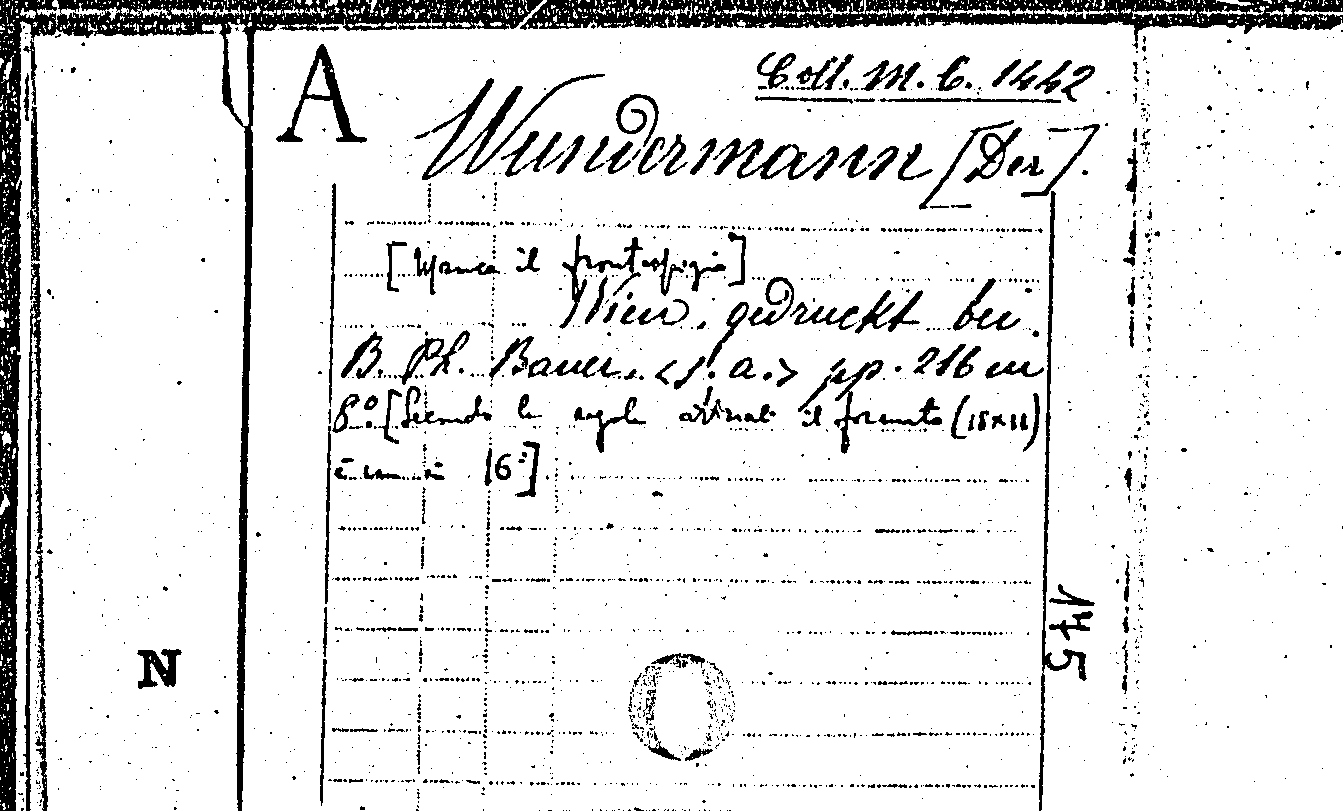 Coll. M. C. 1442
A
Wundermann [Der].
[Manca il frontespizio]
Wien, gedruckt bei
B. Ph. Bauer. <s. a.> pp. 216 in
8.º [Secondo le regole attuali il formato (18×11)
è un in 16º]
145
N